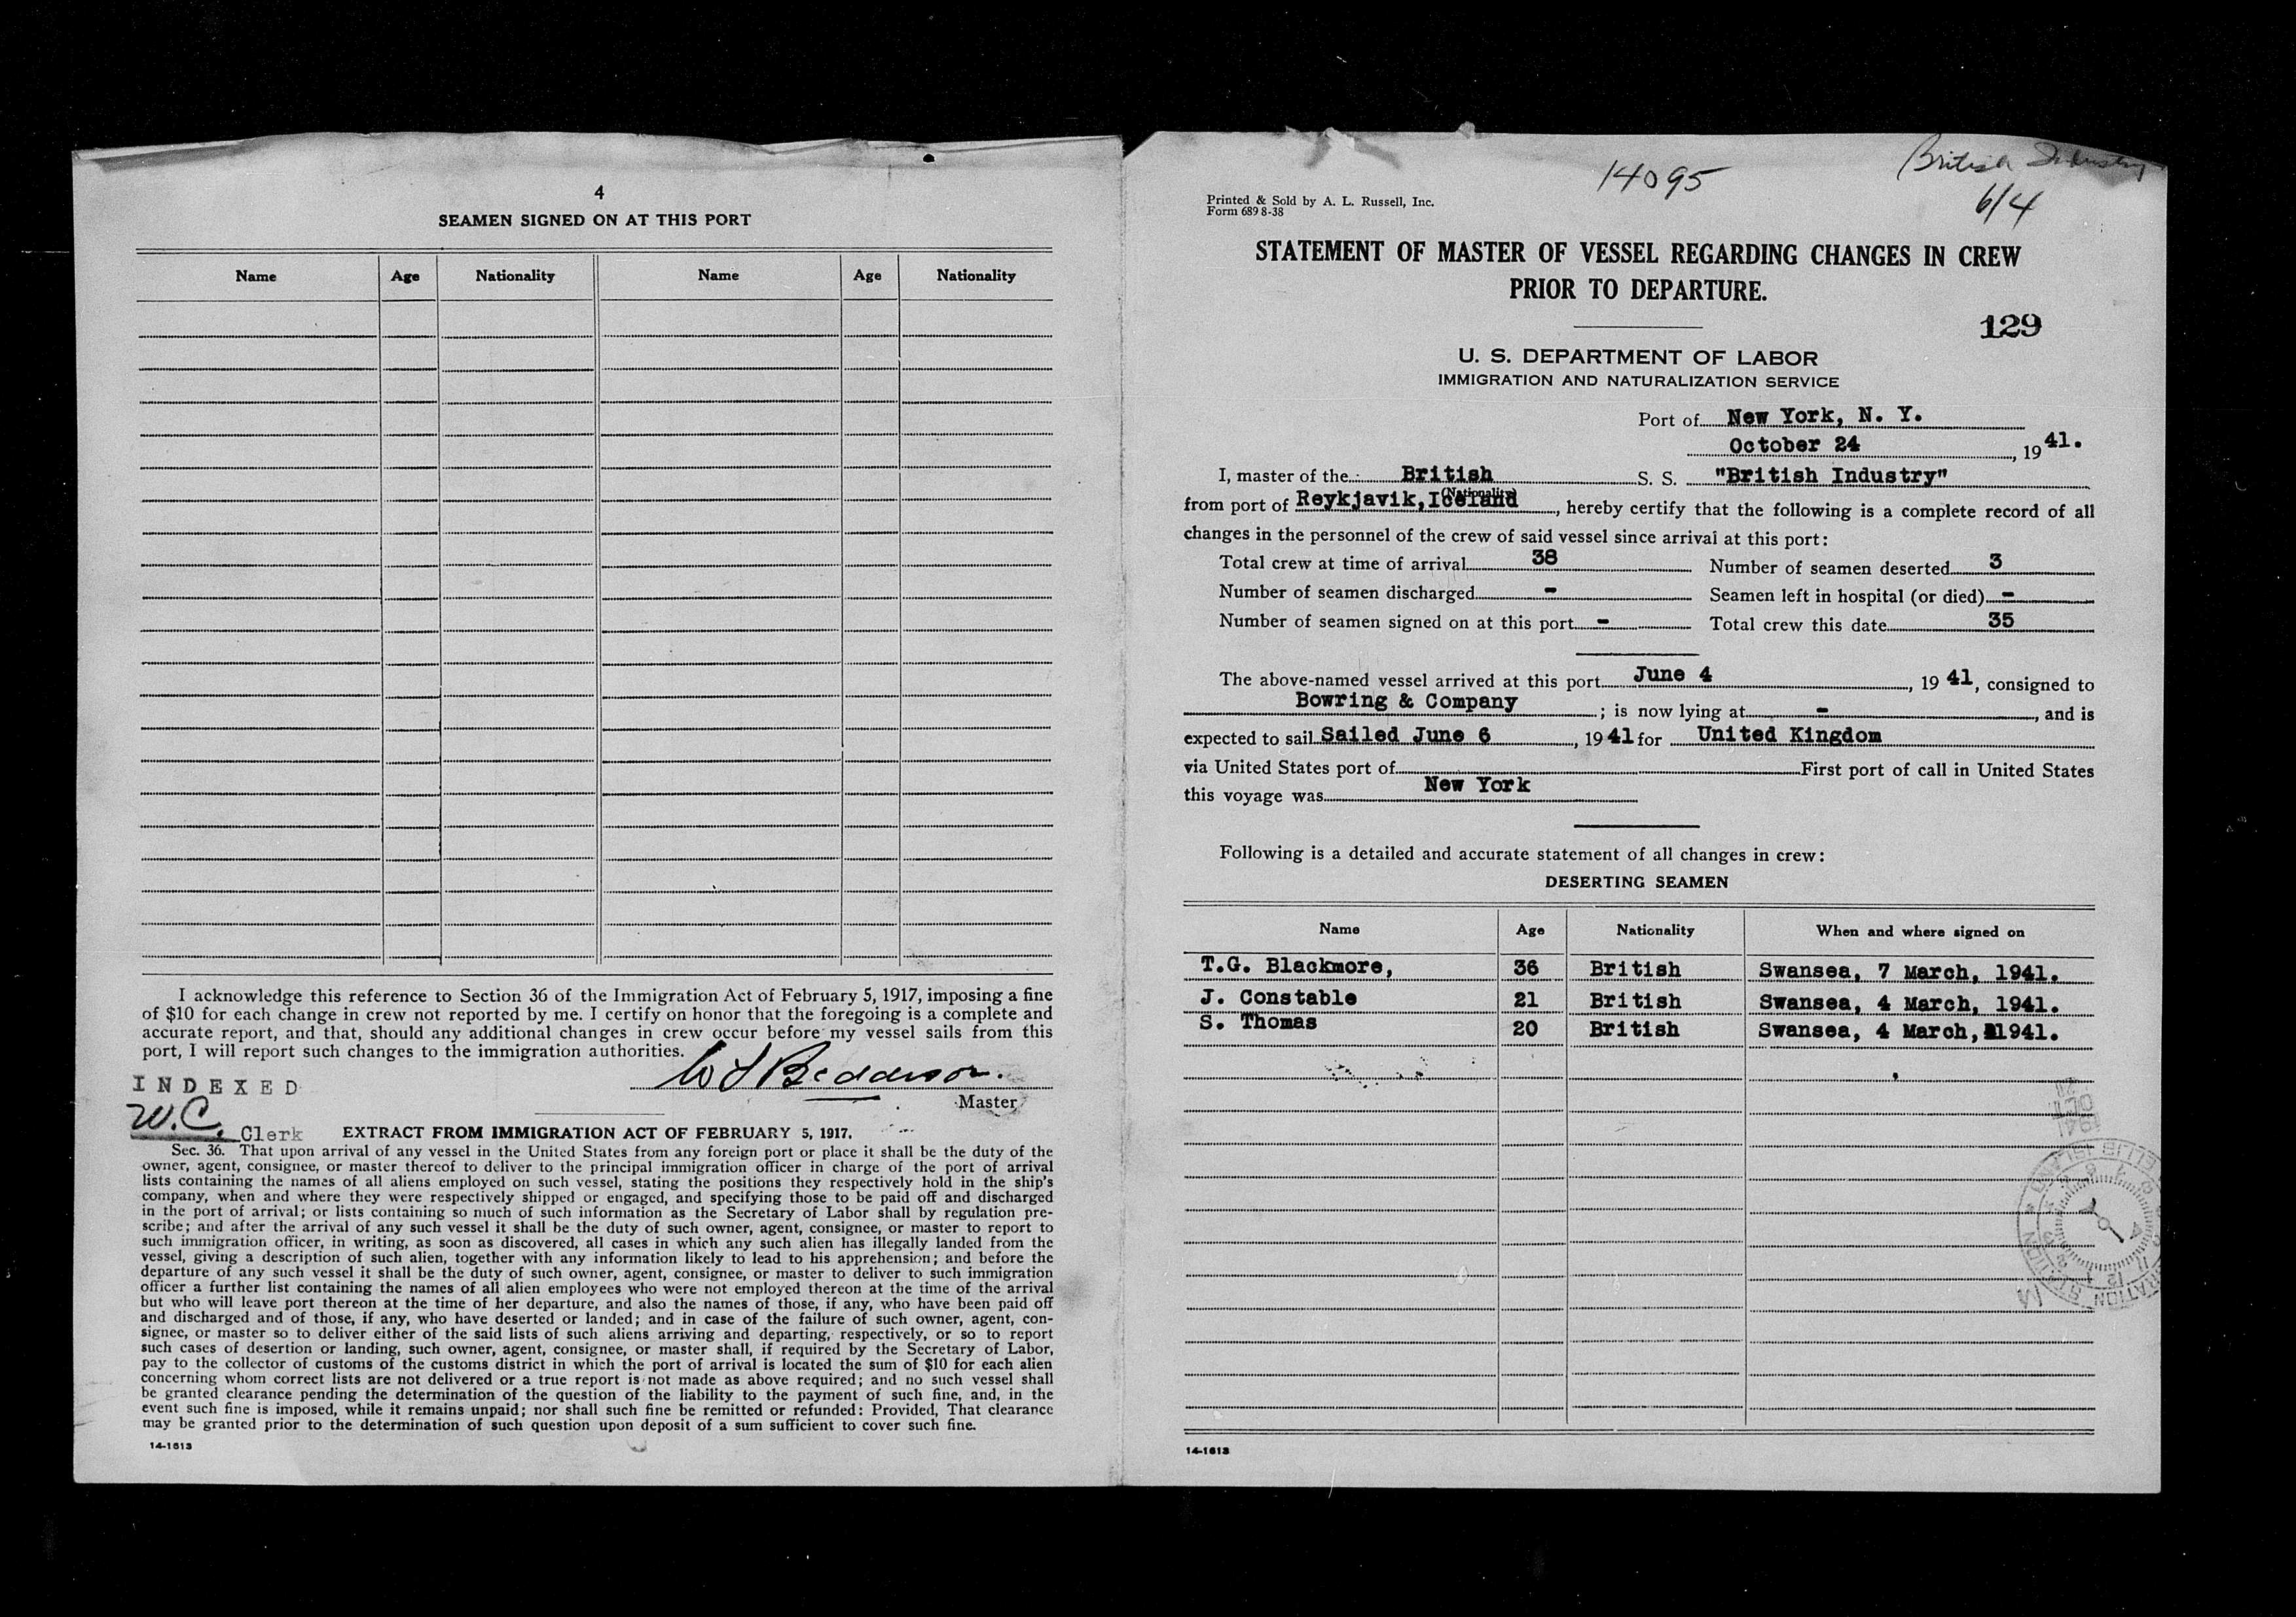 4
SEAMEN SIGNED ON AT THIS PORT
Name Age Nationality Name Age Nationality
I acknowledge this reference to Section 36 of the Immigration Act of February 5, 1917, imposing a fine
of $10 for each change in crew not reported by me. I certify on honor that the foregoing is a complete and
accurate report, and that, should any additional changes in crew occur before my vessel sails from this
port, I will report such changes to the immigration authorities.
Master
INDEXED
W.C. Clerk
EXTRACT FROM IMMIGRATION ACT OF FEBRUARY 5, 1917.
Sec. 36. That upon arrival of any vessel in the United States from any foreign port or place it shall be the duty of the
owner, agent, consignee, or master thereof to deliver to the principal immigration officer in charge of the port of arrival
lists containing the names of all aliens employed on such vessel, stating the positions they respectively hold in the ship's
company, when and where they were respectively shipped or engaged, and specifying those to be paid off and discharged
in the port of arrival; or lists containing so much of such information as the Secretary of Labor shall by regulation pre-
scribe; and after the arrival of any such vessel it shall be the duty of such owner, agent, consignee, or master to report to
such immigration officer, in writing, as soon as discovered, all cases in which any such alien has illegally landed from the
vessel, giving a description of such alien, together with any information likely to lead to his apprehension; and before the
departure of any such vessel it shall be the duty of such owner, agent, consignee, or master to deliver to such immigration
officer a further list containing the names of all alien employees who were not employed thereon at the time of the arrival
but who will leave port thereon at the time of her departure, and also the names of those, if any, who have been paid off
and discharged and of those, if any, who have deserted or landed; and in case of the failure of such owner, agent, con-
signee, or master so to deliver either of the said lists of such aliens arriving and departing, respectively, or so to report
such cases of desertion or landing, such owner, agent, consignee, or master shall, if required by the Secretary of Labor,
pay to the collector of customs of the customs district in which the port of arrival is located the sum of $10 for each alien
concerning whom correct lists are not delivered or a true report is not made as above required; and no such vessel shall
be granted clearance pending the determination of the question of the liability to the payment of such fine, and, in the
event such fine is imposed, while it remains unpaid; nor shall such fine be remitted or refunded: Provided, That clearance
may be granted prior to the determination of such question upon deposit of a sum sufficient to cover such fine.
14-1613
14095
British Industry
6/4
Printed & Sold by A. L. Russell, Inc.
Form 689 8-38
STATEMENT OF MASTER OF VESSEL REGARDING CHANGES IN CREW
PRIOR TO DEPARTURE.
129
U. S. DEPARTMENT OF LABOR
IMMIGRATION AND NATURALIZATION SERVICE
Port of New York, N. Y.
October 24, 1941.
I, master of the British S. S. "British Industry"
(Nationality)
from port of Reykjavik, Iceland, hereby certify that the following is a complete record of all
changes in the personnel of the crew of said vessel since arrival at this port:
Total crew at time of arrival 38 Number of seamen deserted 3
Number of seamen discharged - Seamen left in hospital (or died) -
Number of seamen signed on at this port - Total crew this date 35
The above-named vessel arrived at this port June 4, 1941, consigned to
Bowring & Company; is now lying at -, and is
expected to sail Sailed June 6, 1941 for United Kingdom
via United States port of First port of call in United States
this voyage was New York
Following is a detailed and accurate statement of all changes in crew:
DESERTING SEAMEN
Name Age Nationality When and where signed on
T.G. Blackmore, 36 British Swansea, 7 March, 1941.
J. Constable 21 British Swansea, 4 March, 1941.
S. Thomas 20 British Swansea, 4 March, 1941.
14-1613